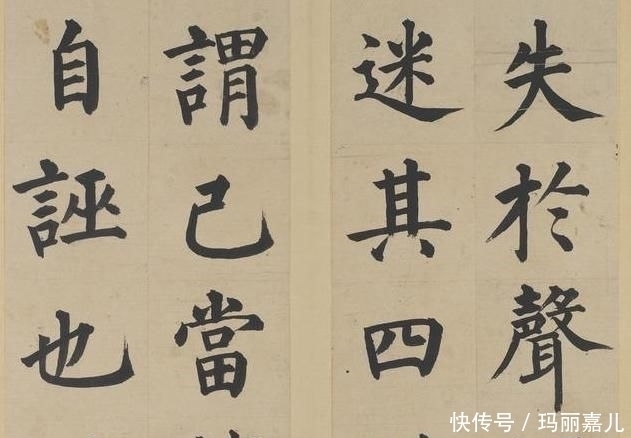 失於聲
迷其四
謂己當
自誣也
快传号／玛丽嘉儿